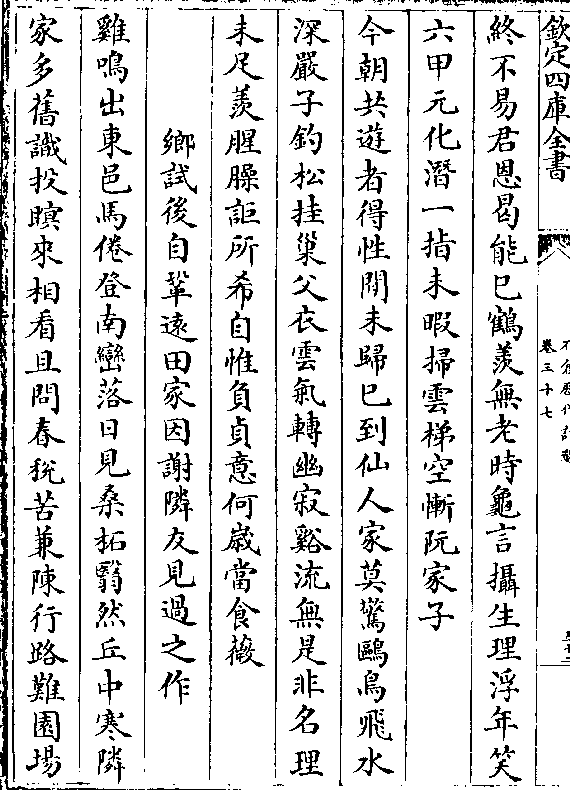 欽定四庫全書
卷三十七
終不易君恩曷能已鶴羨無老時龜言攝生理浮年笑
六甲元化潛一指未暇掃雲梯空慚阮家子
今朝共遊者得性閒未歸已到仙人家莫驚鷗鳥飛水
深嚴子釣松挂巢父衣雲氣轉幽寂谿流無是非名理
未足羨腥臊詎所希自惟負貞意何歲當食薇
鄉試後自鞏逺田家因謝隣友見過之作
雞鳴出東邑馬倦登南巒落日見桑柘翳然丘中寒隣
家多舊識投暝來相看且問春稅苦兼陳行路難園場